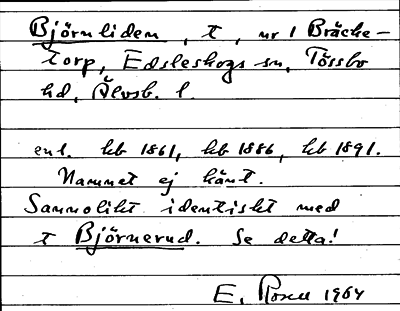 Björnliden, t, nr 1 Bräcke-
torp, Edsleskogs sn, Tössbo
hd, Älvsb. l.
enl. hb 1861, hb 1886, hb 1891.
Namnet ej känt.
Sannolikt identiskt med
t Björnerud. Se detta!
E. Rosell 1964